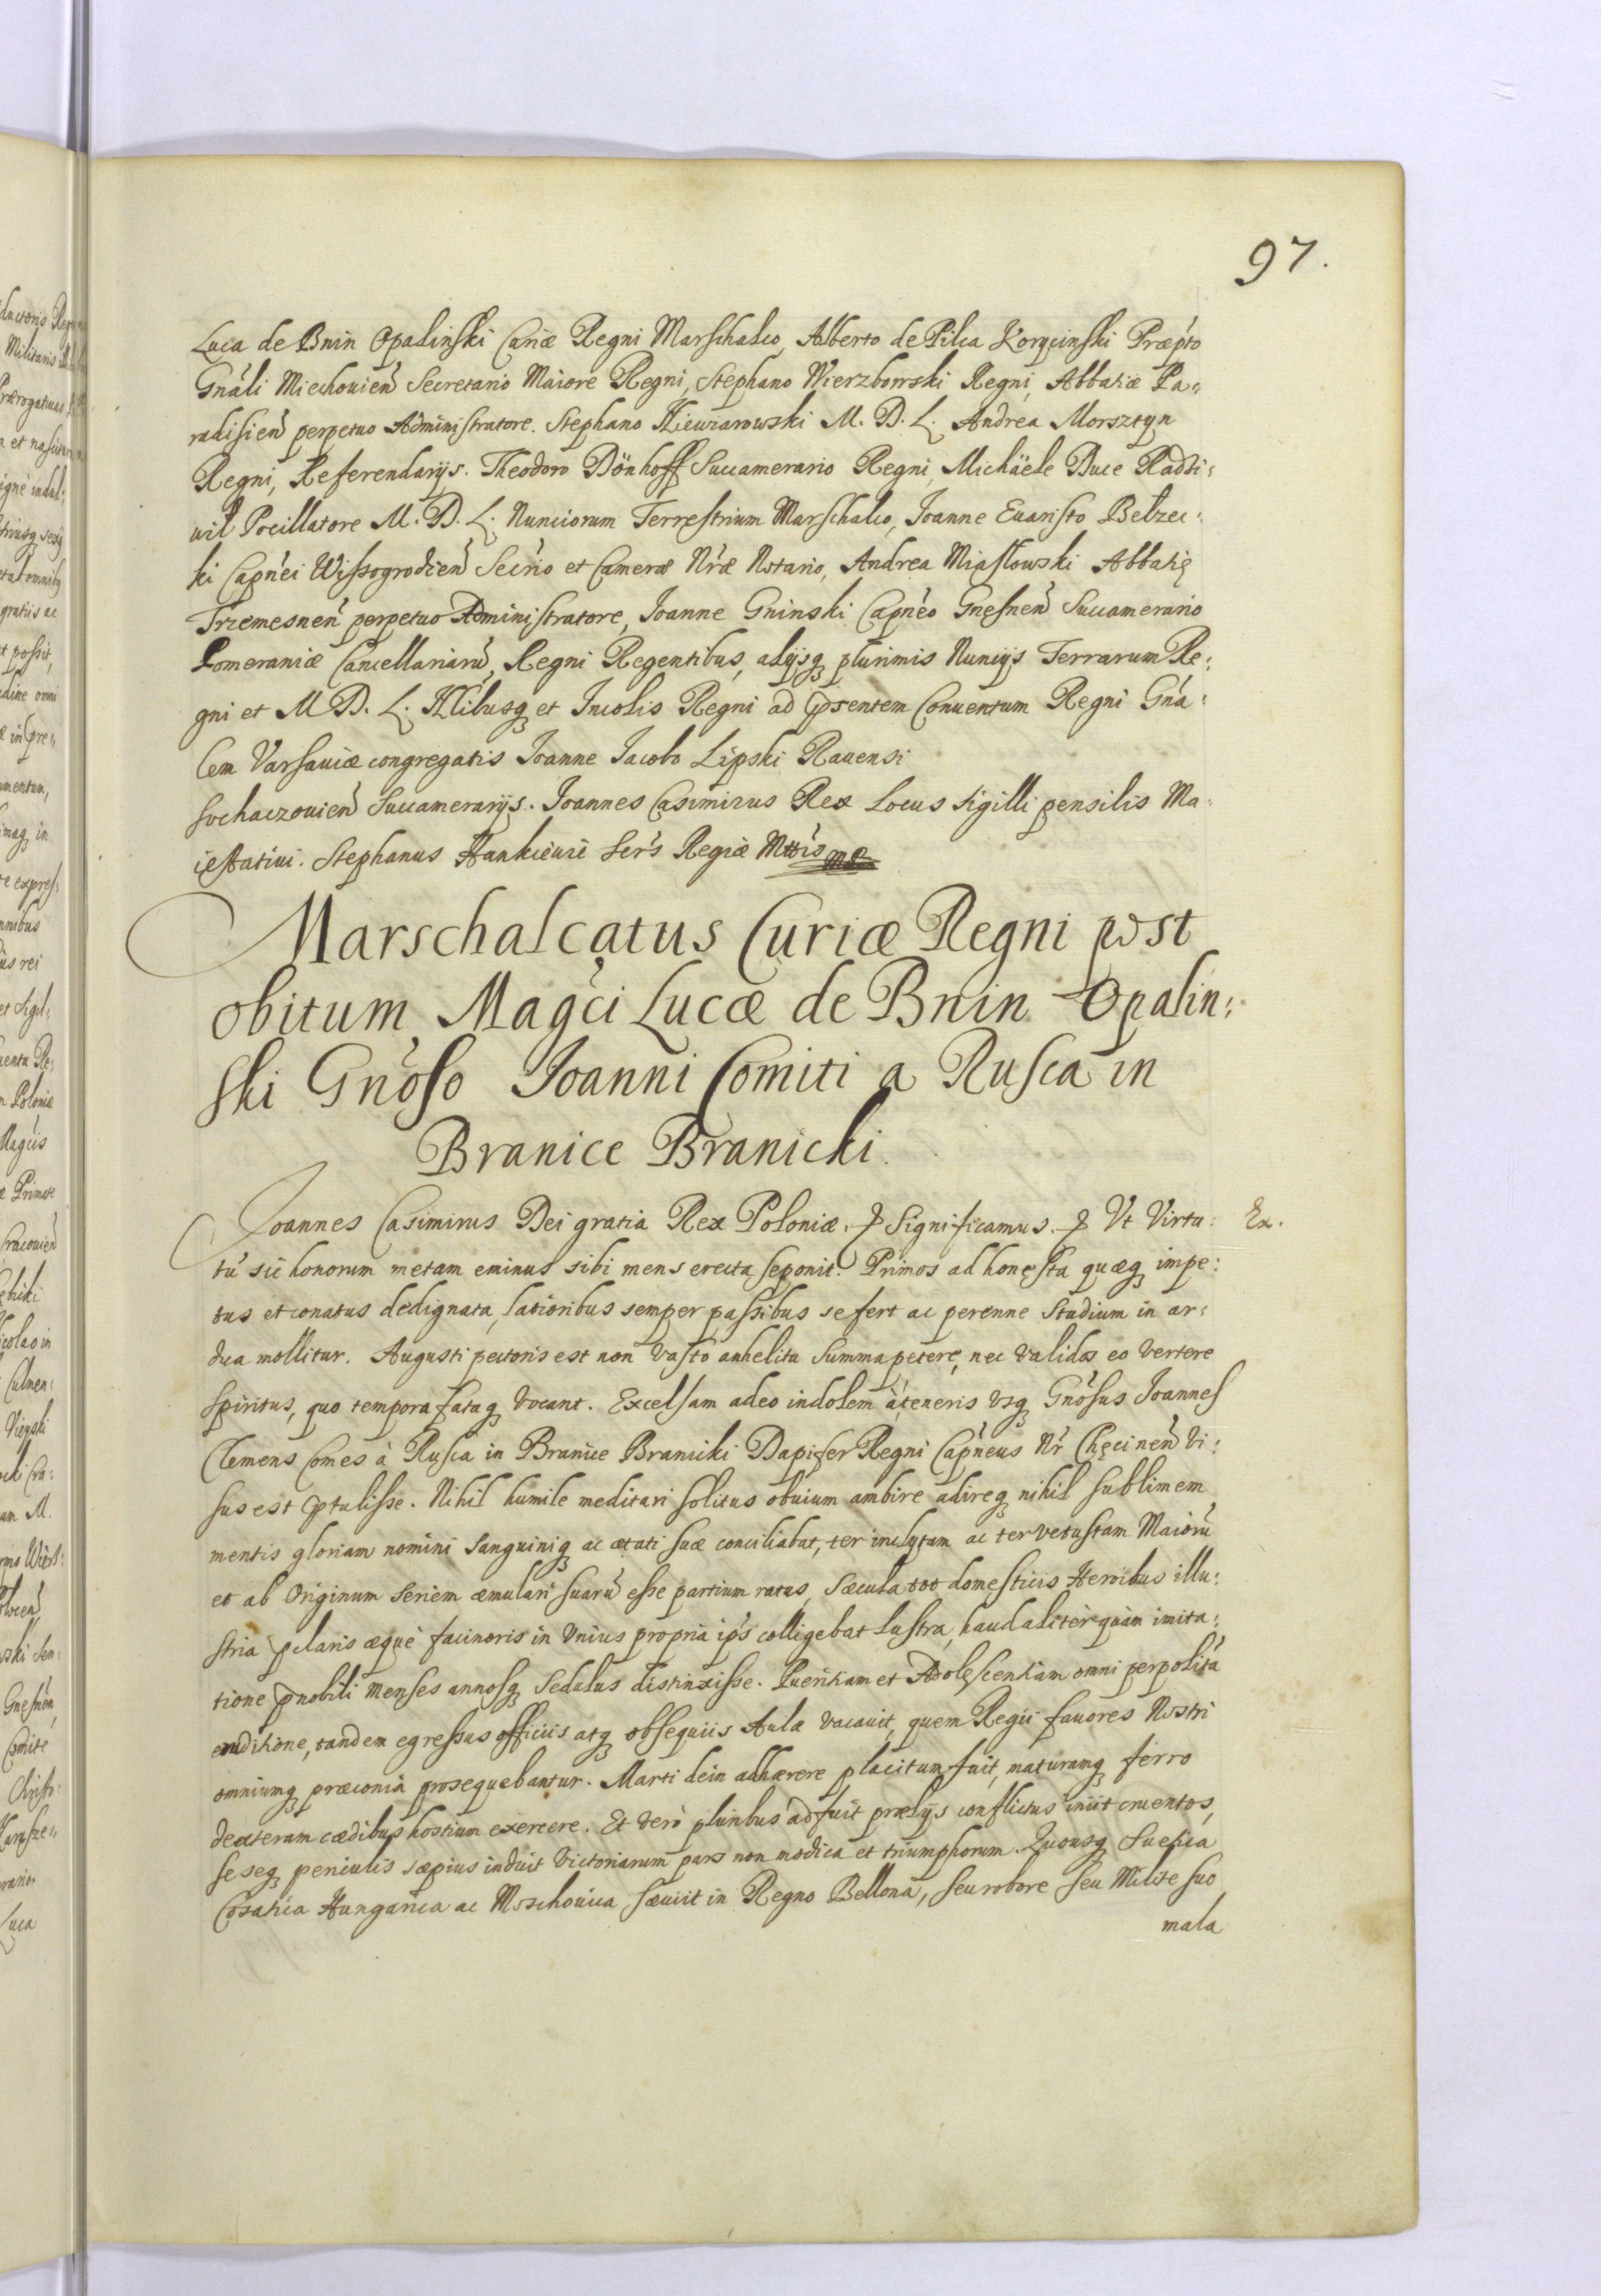 97.
Luca de Bnin Opalinski Curiæ Regni Marschalco, Alberto de Pilca Korycinski Præpto
Gnáli Miechouien̄ Secretario Maiore Regni, Stephano Wierzbowski Regni, Abbatiæ Pa:
radisien̄ perpetuo Administratore. Stephano M. D. L. Andrea Morsztyn
Regni, Referendarijs. Theodoro Dönhoff Succamerario Regni, Michäele Duce Radzi:
wil Pocillatore M. D. L. Nunciorum Terrestrium Marschalco, Joanne Euaristo Belzec:
ki Capnéi Wissogrodien̄ Secrio et Cameræ Nræ Notario, Andrea Miaskowski Abbatiæ
Trzemesnen̄ perpetuo Administratore, Joanne Gninski Capnéo Gnesnen̄ Succamerario
Pomeraniæ Cancellariarū Regni Regentibus, alijsq plurimis Nuncijs Terrarum Re:
gni et M D. L. Nlibusq et Incolis Regni ad psentem Conuentum Regni Gńa:
lem Varsauiæ congregatis Joanne Jacobo Lipski Rauensi
sochaczouien̄ Succamerarijs. Joannes Casimirus Rex Locus sigilli pensilis Ma:
iestatiui. Stephanus Hankieuic Secrs Regiæ Mttis mp
Marschalcatus Curiæ Regni post
obitum Magci Lucæ de Bnin Opalin:
ski Gnoso Joanni Comiti a Rusca in
Branice Branicki.
Joannes Casimirus Dei gratia Rex Poloniæ. & Significamus. & Vt Virtu: Ex.
tū sic honorum metam eminus sibi mens erecta seponit. Primos ad honesta quæq impe:
tus et conatus dedignata, latioribus semper passibus se fert ac perenne Studium in ar:
dua mollitur. Augusti pectoris est non vasto anhelitu Summa petere, nec validos eo vertere
spiritus, quo tempora fataq vocant. Excelsam adeo indolem à teneris vsq Gnósus Joannes
Clemens Comes à Rusca in Branice Branicki Dapifer Regni Capneus Nr Chęcinen̄ vi:
sus est ptulisse. Nihil humile meditari solitus obuium ambire adireq nihil sublimem
mentis gloriam nomini sanguiniq ac ætati suæ conciliabat, ter inclytam ac ter vetustam Maiorū
et ab Origine Seriem æmulari suarū esse partium ratus, Sæcula tot domesticis Heroibus illu:
stria pclaris æquè facinoris in vnius propria ips colligebat lustra, haud aliter quàm imita:
tione pnobili menses annosq sedulus distinxisse. Pueritiam et Adolescentiam omni perpolitá
eruditione, tandem egressus officiis atq obsequiis Aulæ vacauit, quem Regii fauores Nostri
omniumq præconia prosequebantur. Marti dein adhærere placitum fuit, maturamq ferro
dexteram cædibus hostium exercere. Et verò pluribus adfuit prælijs conflictus iniit cruentos,
seseq periculis sæpius induit victoriarum pars non modica et triumphorum. Quousq Suetica
Cosatica Hungarica ac Moschouica sæuiit in Regno Bellona, seu robore seu Milite suo
mala